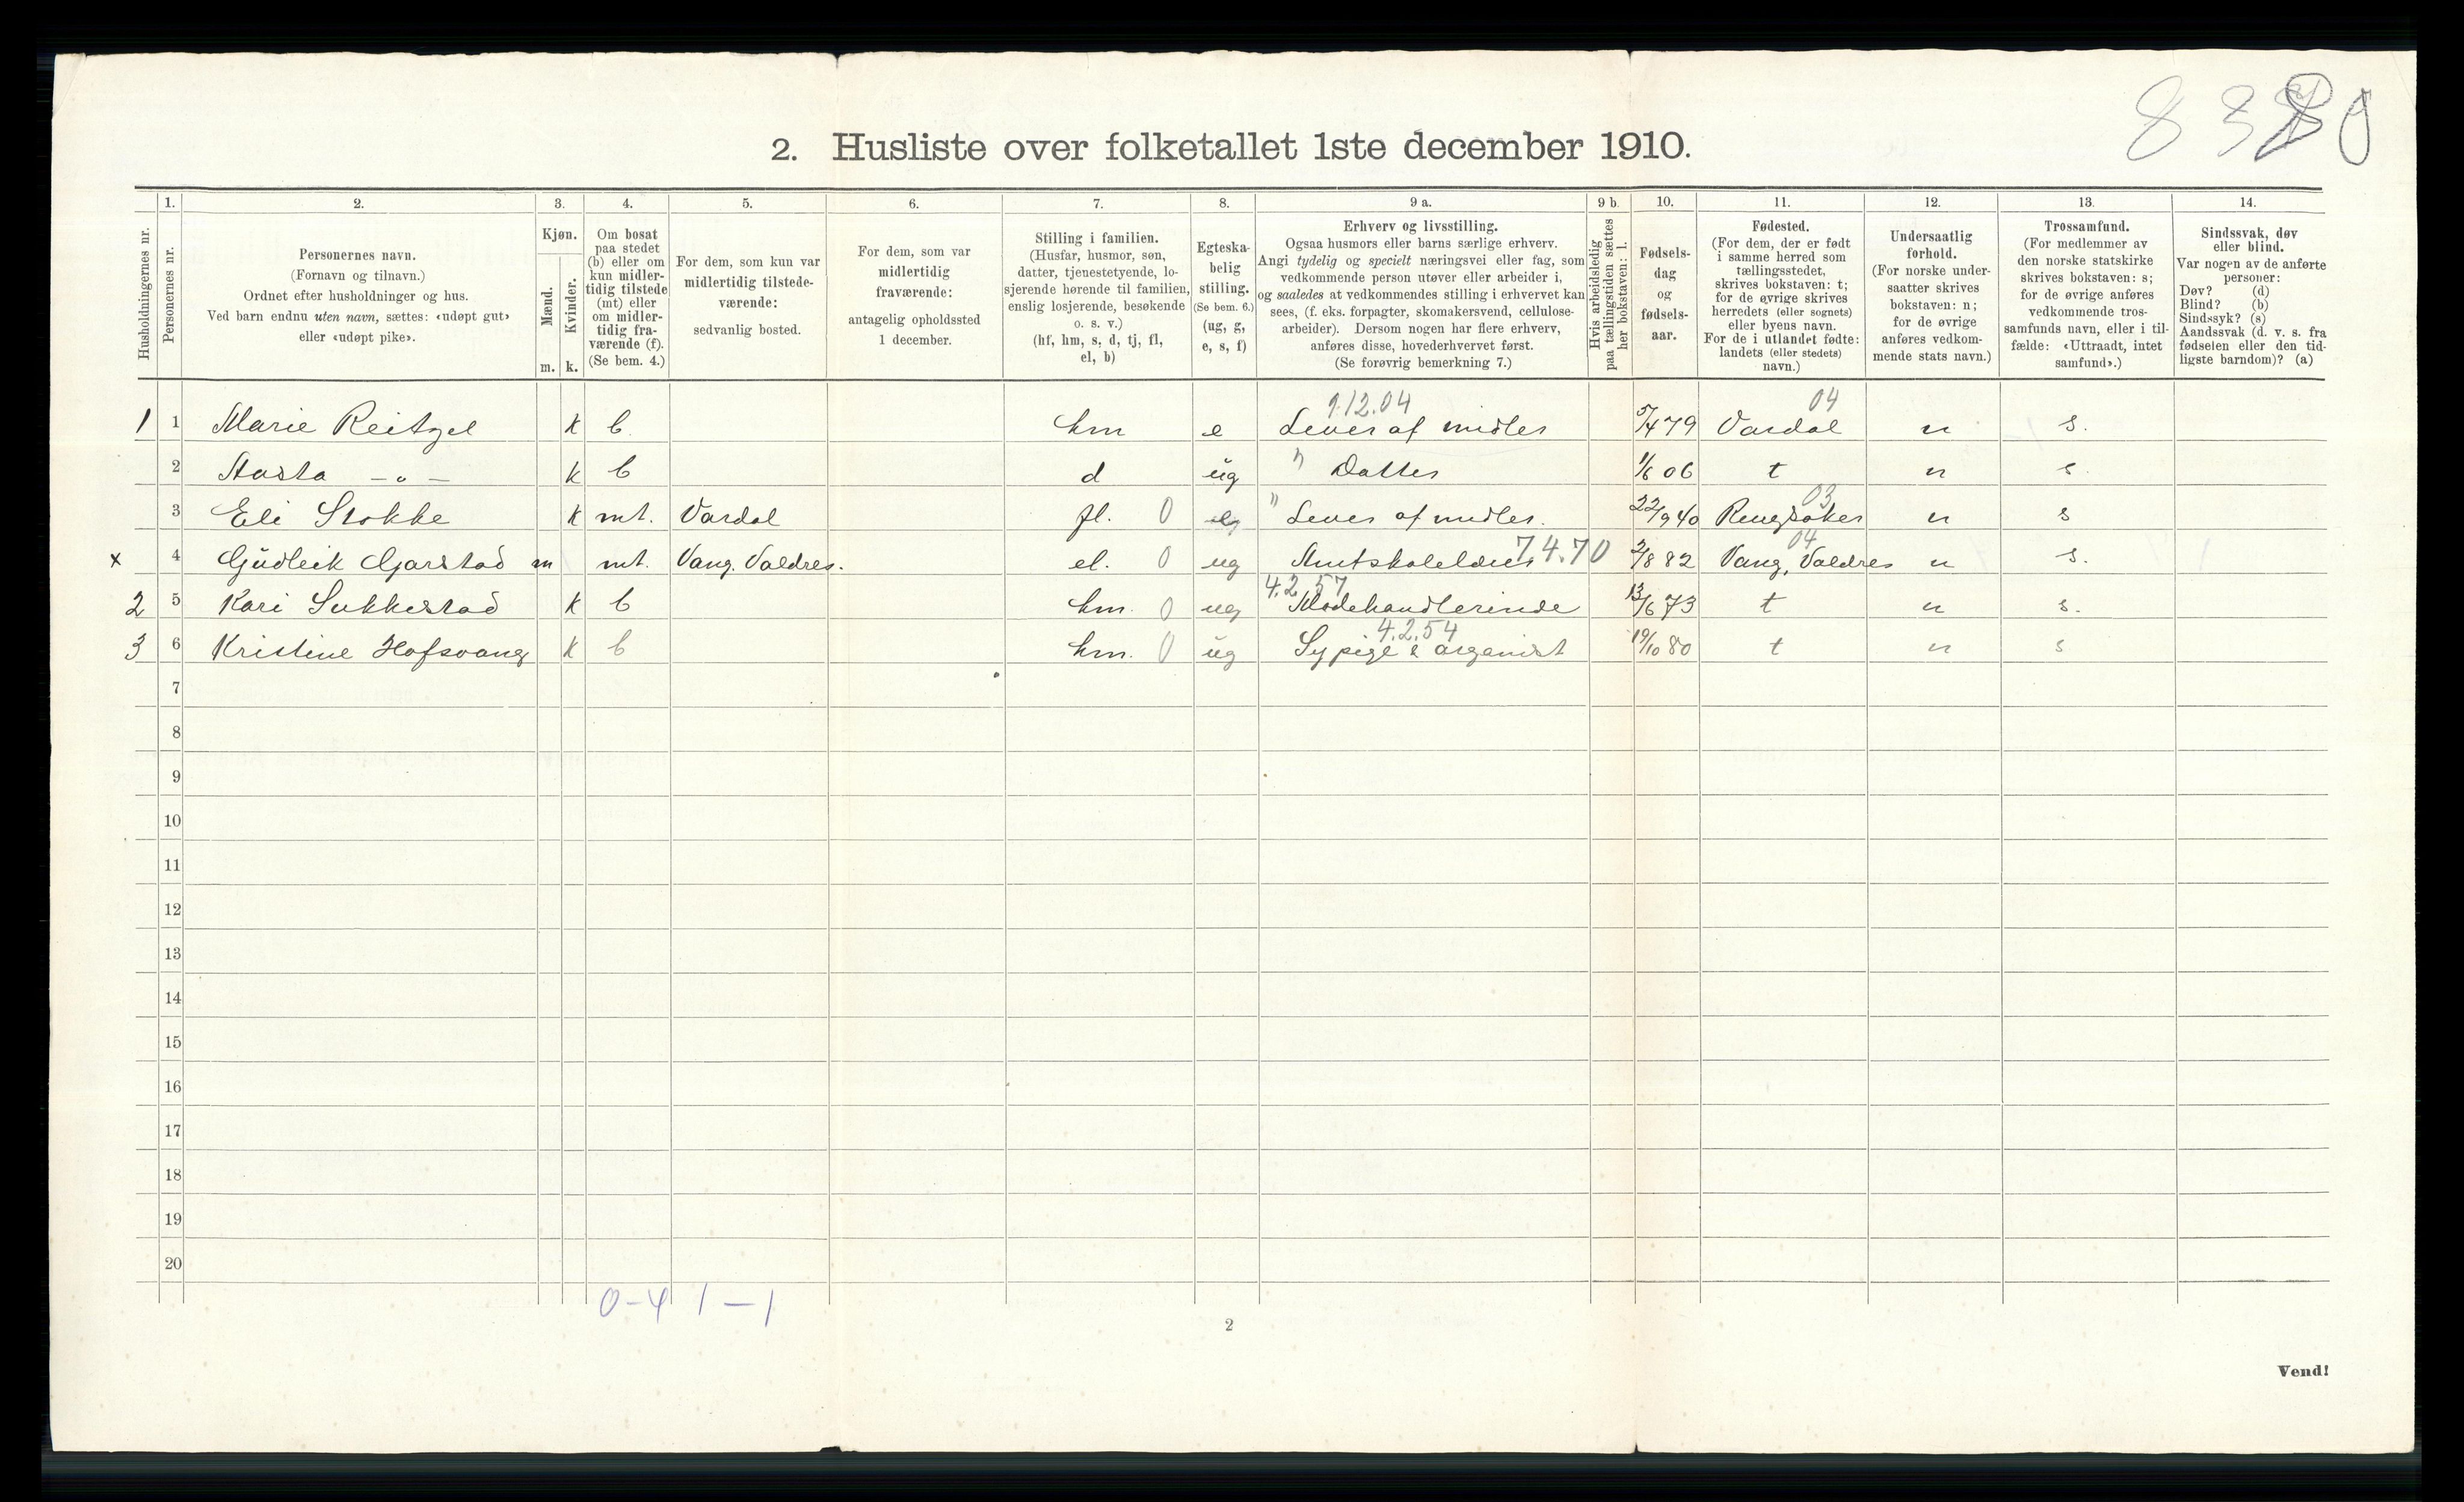 2. Husliste over folketallet 1ste december 1910.
Husholdningernes nr.
1. Personernes nr.
2. Personernes navn.
(Fornavn og tilnavn.)
Ordnet efter husholdninger og hus.
Ved barn endnu uten navn, sættes: «udøpt gut»
eller «udøpt pike».
3. Kjøn.
Mænd. m.
Kvinder. k.
4. Om bosat
paa stedet
(b) eller om
kun midler-
tidig tilstede
(mt) eller
om midler-
tidig fra-
værende (f).
(Se bem. 4.)
5. For dem, som kun var
midlertidig tilstede-
værende:
sedvanlig bosted.
6. For dem, som var
midlertidig
fraværende:
antagelig opholdssted
1 december.
7. Stilling i familien.
(Husfar, husmor, søn,
datter, tjenestetyende, lo-
sjerende hørende til familien,
enslig losjerende, besøkende
o. s. v.)
(hf, hm, s, d, tj, fl,
el, b)
8. Egteska-
belig
stilling.
(Se bem. 6.)
(ug, g,
e, s, f)
9 a. Erhverv og livsstilling.
Ogsaa husmors eller barns særlige erhverv.
Angi tydelig og specielt næringsvei eller fag, som
vedkommende person utøver eller arbeider i,
og saaledes at vedkommendes stilling i erhvervet kan
sees, (f. eks. forpagter, skomakersvend, cellulose-
arbeider). Dersom nogen har flere erhverv,
anføres disse, hovederhvervet først.
(Se forøvrig bemerkning 7.)
9 b. Hvis arbeidsledig
paa tællingstiden sættes
her bokstaven: l.
10. Fødsels-
dag
og
fødsels-
aar.
11. Fødested.
(For dem, der er født
i samme herred som
tællingsstedet,
skrives bokstaven: t;
for de øvrige skrives
herredets (eller sognets)
eller byens navn.
For de i utlandet fødte:
landets (eller stedets)
navn.)
12. Undersaatlig
forhold.
(For norske under-
saatter skrives
bokstaven: n;
for de øvrige
anføres vedkom-
mende stats navn.)
13. Trossamfund.
(For medlemmer av
den norske statskirke
skrives bokstaven: s;
for de øvrige anføres
vedkommende tros-
samfunds navn, eller i til-
fælde: «Uttraadt, intet
samfund».)
14. Sindssvak, døv
eller blind.
Var nogen av de anførte
personer:
Døv? (d)
Blind? (b)
Sindssyk? (s)
Aandssvak (d. v. s. fra
fødselen eller den tid-
ligste barndom)? (a)
9.12.04 04
1 1 Marie Reitzel k b. hm e Lever af midler 5/4 79 Vardal n s.
2 Aasta -"- k b d ug " Datter 1/6 06 t n s.
03
3 Eli Stokke k mt. Vardal fl. 0 " Lever af midler. 22/9 40 Ringsaker n s
7.4.70 04
x 4 Gudleik Gjarstad m mt. Vang. Valdres. el. 0 ug 2/8 82 Vang, Valdres n s.
4.2.57
2 5 Kari Sukkestad k b hm. 0 ug Modehandlerinde 13/6 73 t n s.
4.2.54
3 6 Kristine Hofsvang k b hm. 0 ug Sypige & organist 19/10 80 t n s
7
8
9
10
11
12
13
14
15
16
17
18
19
20
0-4 1-1
2
Vend!